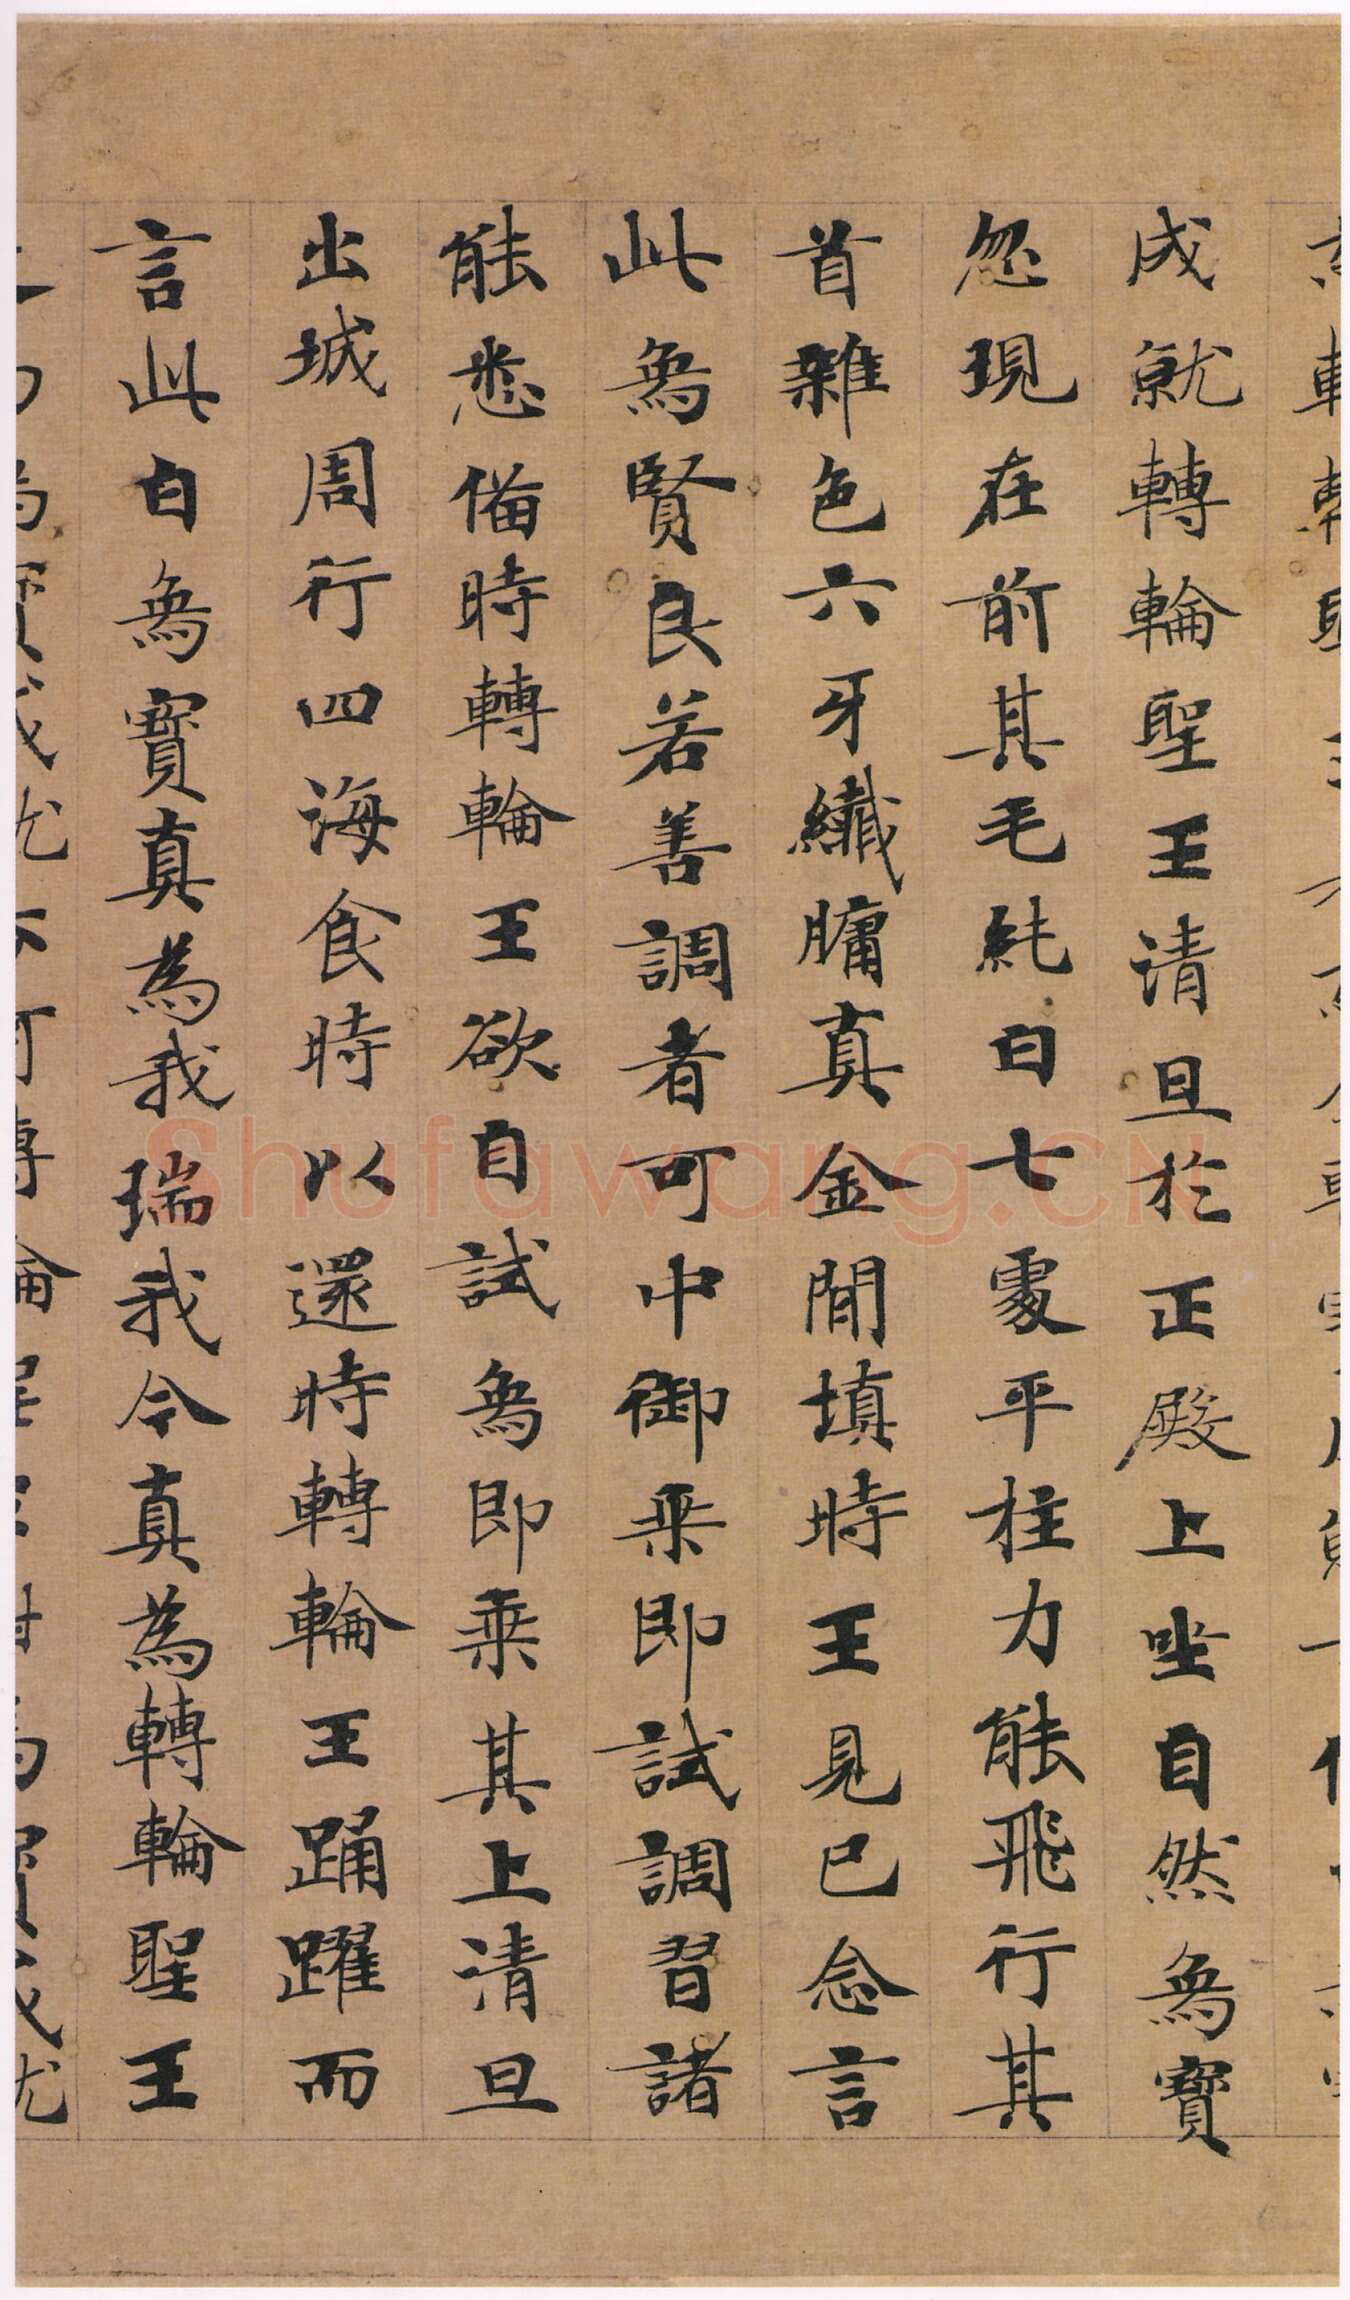 成就轉輪聖王清旦於正殿上坐自然象寶
忽現在前其毛純白七處平柱力能飛行其
首雜色六牙纖𦟛真金間填時王見已念言
此象賢良若善調者可中御乘即試調習諸
能悉俻時轉輪王欲自試象即乘其上清旦
出城周行四海食時以還時轉輪王踊躍而
言此白象寶真為我瑞我今真為轉輪聖王
Shufawang.CN